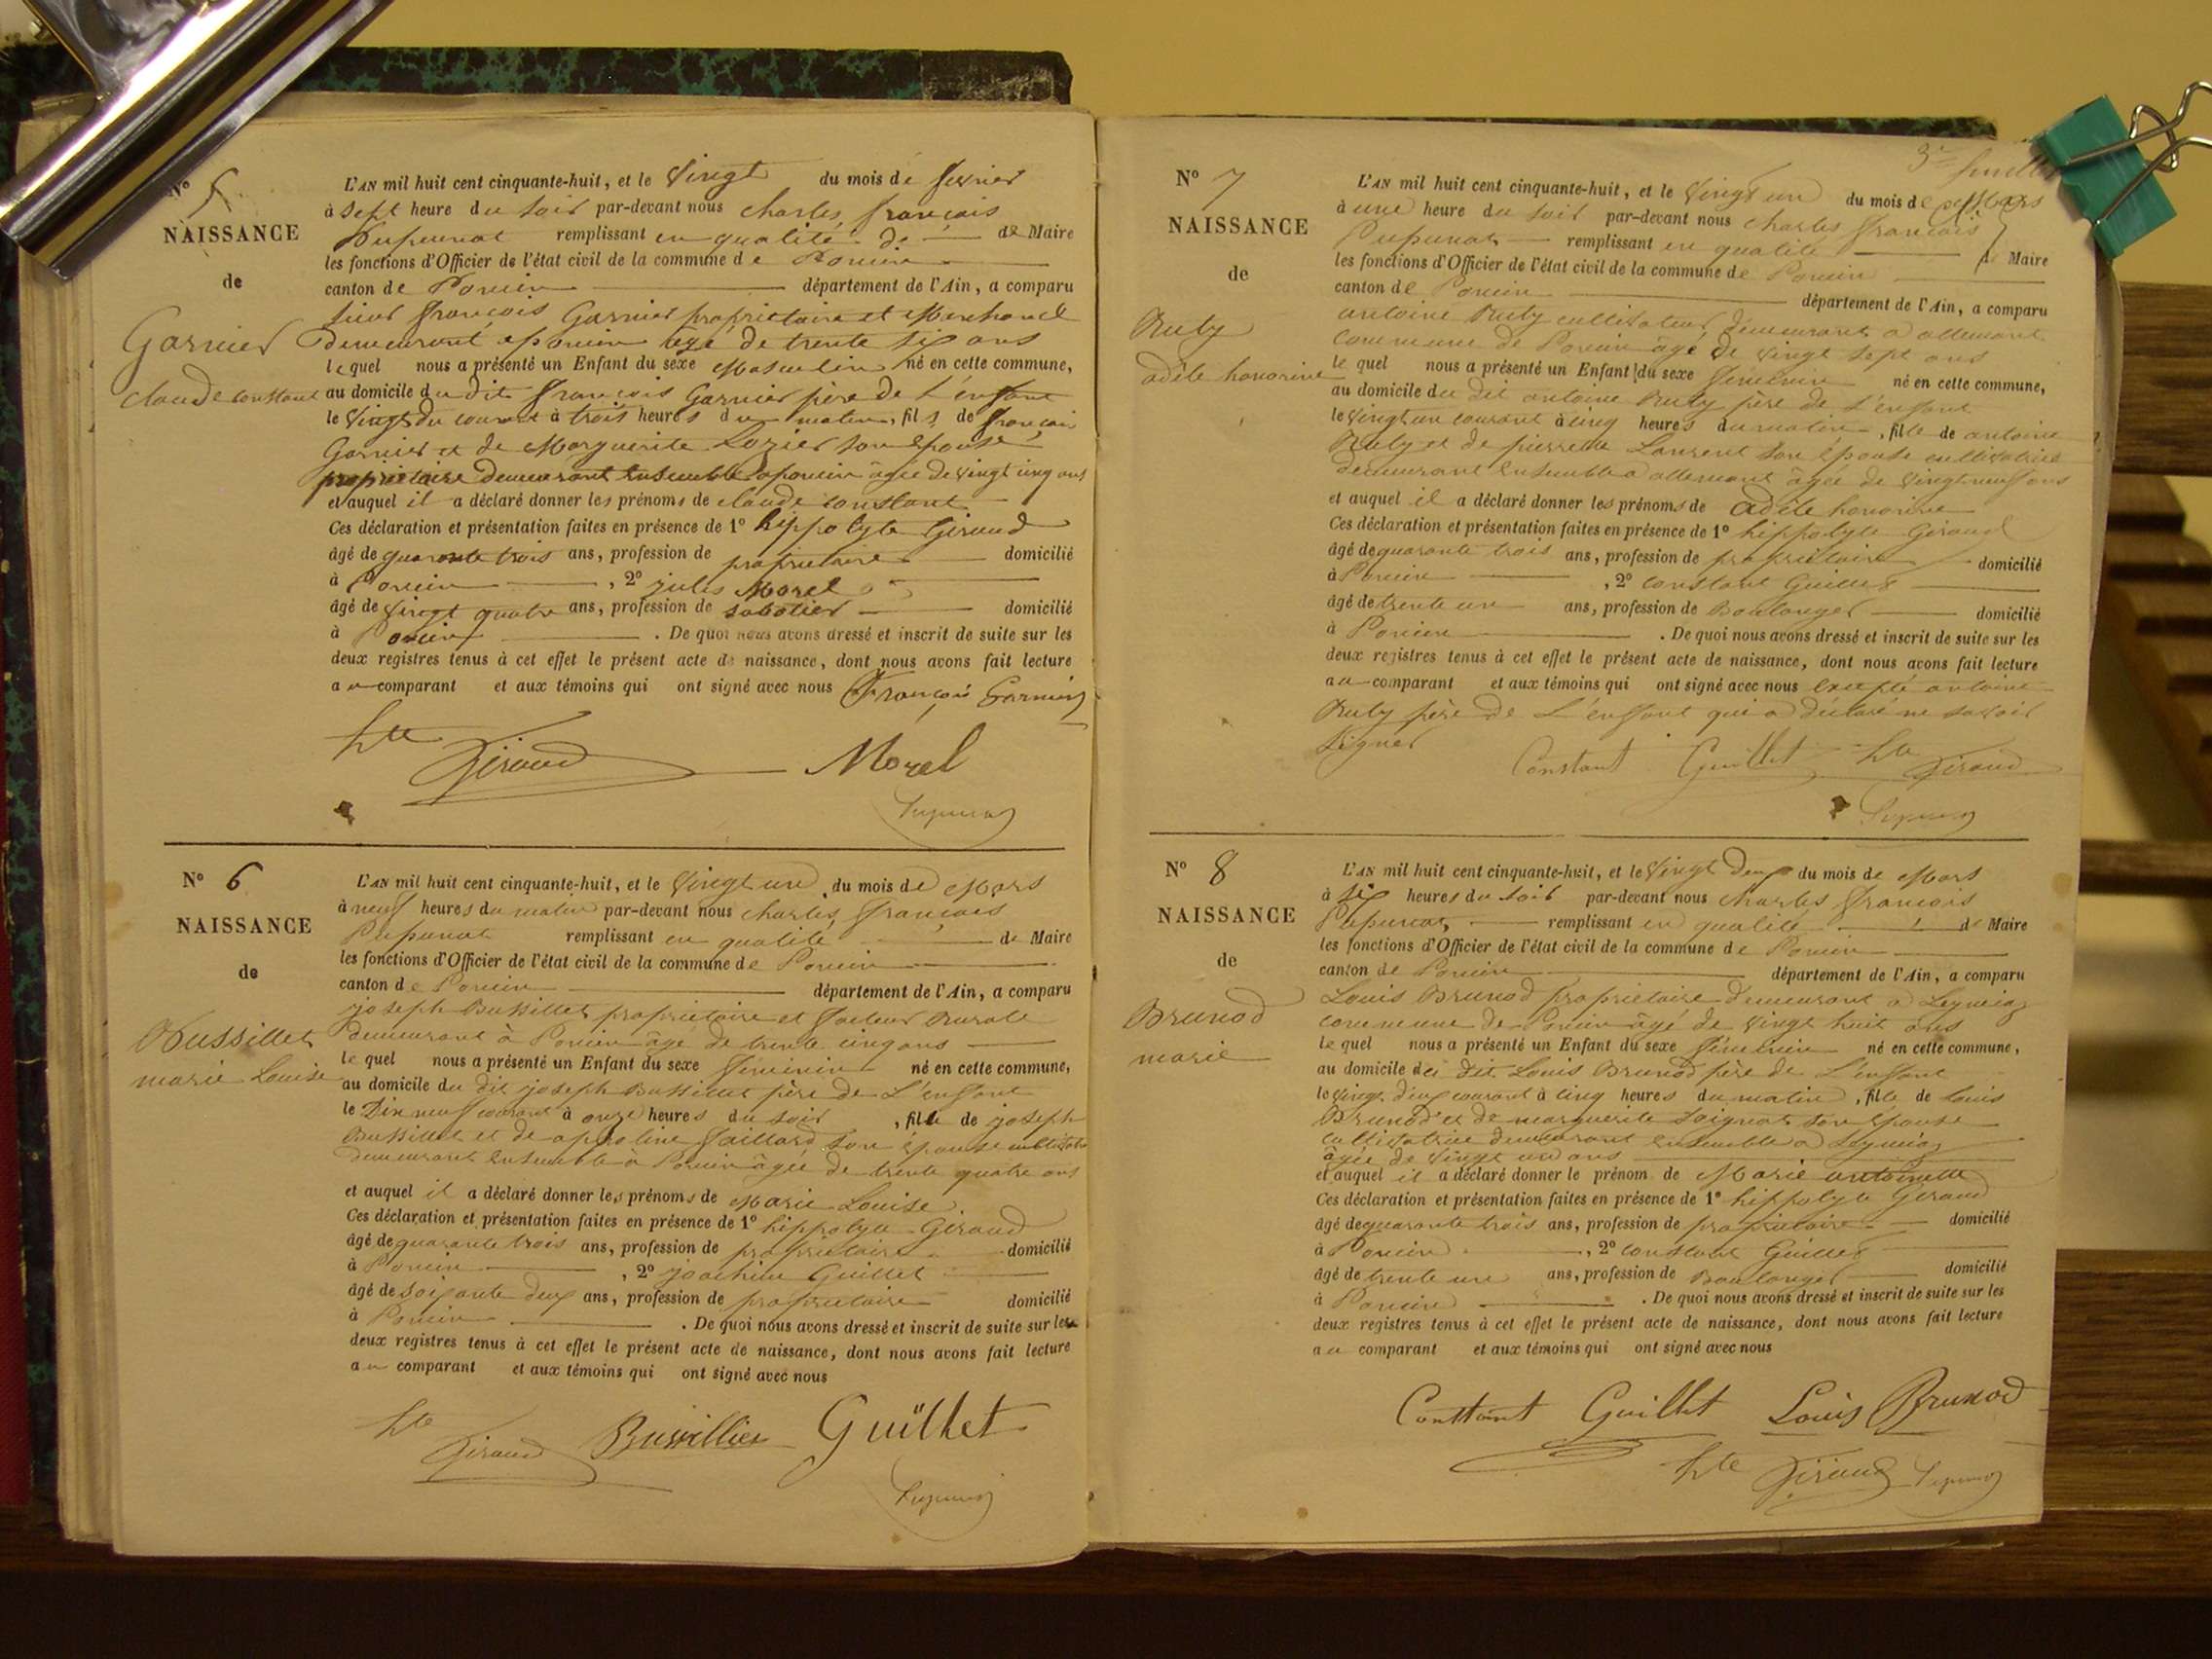 N° 5
NAISSANCE
de
Garnier
claude constant
L'AN mil huit cent cinquante-huit, et le vingt du mois de fevrier
à sept heure du soir par-devant nous charles françois
Pupunat remplissant en qualité de de Maire
les fonctions d'Officier de l'état civil de la commune de Poncin
canton de Poncin département de l'Ain, a comparu
sieur françois Garnier propriétaire et Marchand
demeurant a poncin agé de trente six ans
lequel nous a présenté un Enfant du sexe Masculin né en cette commune,
au domicile du dit françois Garnier père de L'enfant
le vingt du courant à trois heures du matin, fils de françois
Garnier et de Marguerite Lozier son épouse
propriétaire demeurant ensemble a poncin âgée de vingt cinq ans
et auquel il a déclaré donner les prénoms de claude constant
Ces déclaration et présentation faites en présence de 1° hippolyte Giraud
âgé de quarante trois ans, profession de propriétaire domicilié
à Poncin, 2° jules Morel
âgé de vingt quatre ans, profession de sabotier domicilié
à Poncin. De quoi nous avons dressé et inscrit de suite sur les
deux registres tenus à cet effet le présent acte de naissance, dont nous avons fait lecture
au comparant et aux témoins qui ont signé avec nous François Garnier
hte Giraud Morel
Pupunat
N° 6
NAISSANCE
de
Bussillet
marie Louise
L'AN mil huit cent cinquante-huit, et le vingt un du mois de Mars
à neuf heures du matin par-devant nous charles françois
Pupunat remplissant en qualité de Maire
les fonctions d'Officier de l'état civil de la commune de Poncin
canton de Poncin département de l'Ain, a comparu
joseph Bussillet propriétaire et facteur Rurale
demeurant à Poncin âgé de trente cinq ans
le quel nous a présenté un Enfant du sexe féminin né en cette commune,
au domicile du dit joseph Bussillet père de L'enfant
le Dix neuf courant à onze heures du soir, fille de joseph
Bussillet et de appoline Gaillard son épouse
demeurant ensemble à Poncin âgée de trente quatre ans
et auquel il a déclaré donner les prénoms de Marie Louise
Ces déclaration et présentation faites en présence de 1° hippolyte Giraud
âgé de quarante trois ans, profession de propriétaire domicilié
à Poncin, 2° joachim Guillet
âgé de soixante deux ans, profession de propriétaire domicilié
à Poncin. De quoi nous avons dressé et inscrit de suite sur les
deux registres tenus à cet effet le présent acte de naissance, dont nous avons fait lecture
au comparant et aux témoins qui ont signé avec nous
hte Giraud Bussillet Guillet
Pupunat
3e feuillet
N° 7
NAISSANCE
de
Ruty
adèle honorine
L'AN mil huit cent cinquante-huit, et le vingt un du mois de Mars
à une heure du soir par-devant nous charles françois
Pupunat remplissant en qualité de Maire
les fonctions d'Officier de l'état civil de la commune de Poncin
canton de Poncin département de l'Ain, a comparu
antoine Ruty cultivateur demeurant a allement
commune de Poncin âgé de vingt sept ans
le quel nous a présenté un Enfant du sexe féminin né en cette commune,
au domicile du dit antoine Ruty père de L'enfant
le vingt un courant à cinq heures du matin, fille de antoine
Ruty et de pierrette Laurent son épouse cultivatrice
demeurant ensemble a allement âgée de vingt neuf ans
et auquel il a déclaré donner les prénoms de adèle honorine
Ces déclaration et présentation faites en présence de 1° hippolyte Giraud
âgé de quarante trois ans, profession de propriétaire domicilié
à Poncin, 2° constant Guillet
âgé de trente un ans, profession de Boulanger domicilié
à Poncin. De quoi nous avons dressé et inscrit de suite sur les
deux registres tenus à cet effet le présent acte de naissance, dont nous avons fait lecture
au comparant et aux témoins qui ont signé avec nous excepté antoine
Ruty père de L'enfant qui a déclaré ne savoir
signer
Constant Guillet hte Giraud
Pupunat
N° 8
NAISSANCE
de
Brunod
marie
L'AN mil huit cent cinquante-huit, et le vingt deux du mois de Mars
à six heures du soir par-devant nous charles françois
Pupunat, remplissant en qualité de Maire
les fonctions d'Officier de l'état civil de la commune de Poncin
canton de Poncin département de l'Ain, a comparu
Louis Brunod propriétaire demeurant a Leymiaz
commune de Poncin âgé de vingt huit ans
le quel nous a présenté un Enfant du sexe féminin né en cette commune,
au domicile du dit Louis Brunod père de L'enfant
le vingt deux courant à cinq heures du matin, fille de Louis
Brunod et de marguerite Soignat son épouse
cultivatrice demeurant ensemble a Leymiaz
âgée de vingt un ans
et auquel il a déclaré donner le prénom de Marie antoinette
Ces déclaration et présentation faites en présence de 1° hippolyte Giraud
âgé de quarante trois ans, profession de propriétaire domicilié
à Poncin, 2° constant Guillet
âgé de trente un ans, profession de Boulanger domicilié
à Poncin. De quoi nous avons dressé et inscrit de suite sur les
deux registres tenus à cet effet le présent acte de naissance, dont nous avons fait lecture
au comparant et aux témoins qui ont signé avec nous
Constant Guillet Louis Brunod
hte Giraud Pupunat